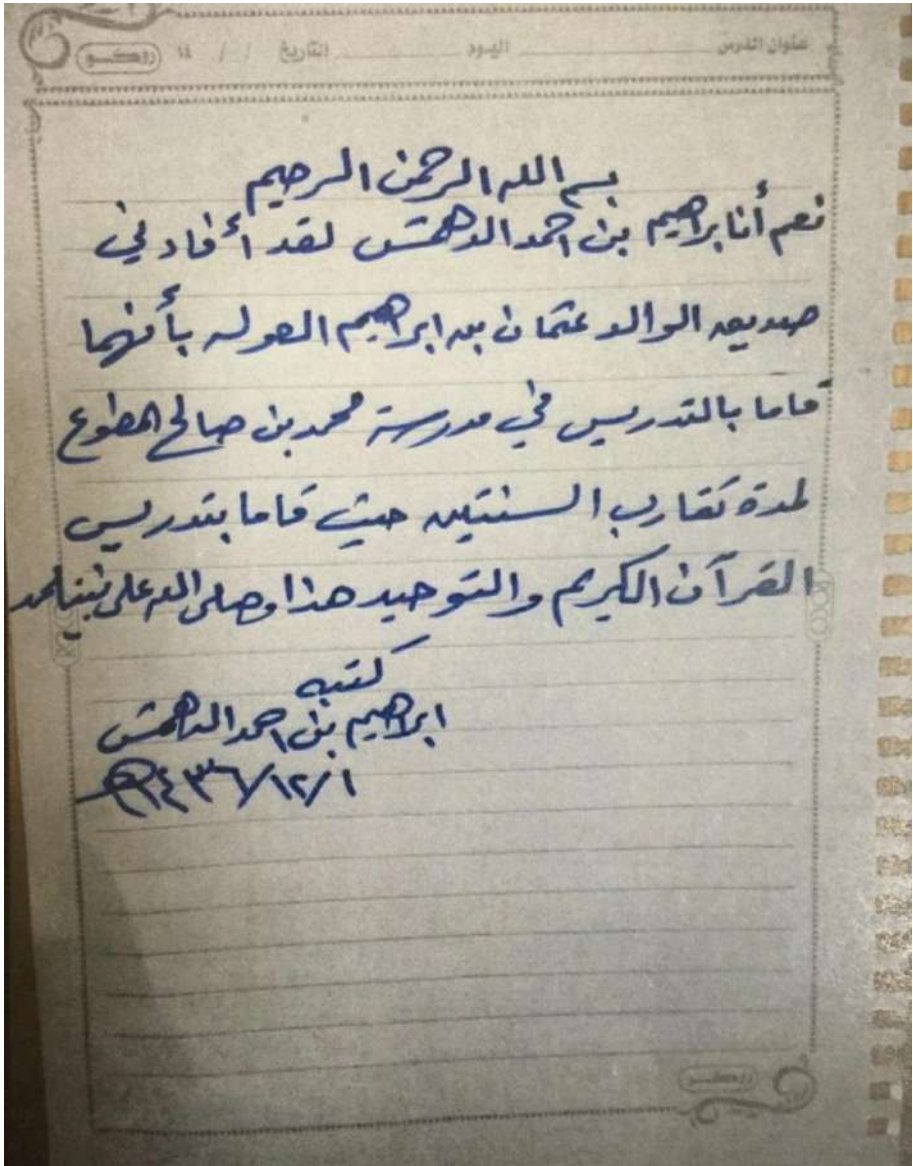 عنوان الدرس اليوم التاريخ / / ١٤ روكو
بسم الله الرحمن الرحيم
نعم أنا ابراهيم بن احمد الدهمش لقد أفادني
صديق الوالد عثمان بن ابراهيم بأنهما
قاما بالتدريس في مدرسة محمد بن صالح المطوع
لمدة تقارب السنتين حيث قاما بتدريس
القرآن الكريم والتوحيد هذا وصلى الله على نبينا محمد
كتبه
ابراهيم بن احمد الدهمش
١٤٣٦/١٢/١هـ
روكو